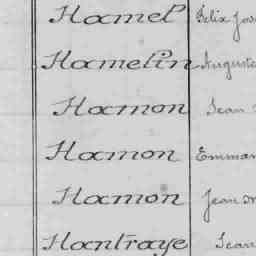 Hamel Félix Jos
Hamelin Auguste
Hamon Jean
Hamon Emman
Hamon Jean M
Hantraye Jean